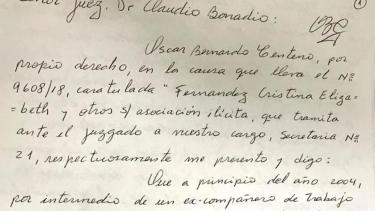 Señor Juez. Dr Claudio Bonadio:
Oscar Bernardo Centeno, por
propio derecho, en la causa que lleva el Nº
9608/18, caratulada "Fernandez Cristina Eliza-
=beth y otros s/ asociación ilicita, que tramita
ante el juzgado a nuestro cargo, Secretaria Nº
21, respetuosamente me presento y digo:
Que a principio del año 2004,
por intermedio de un ex-compañero de trabajo